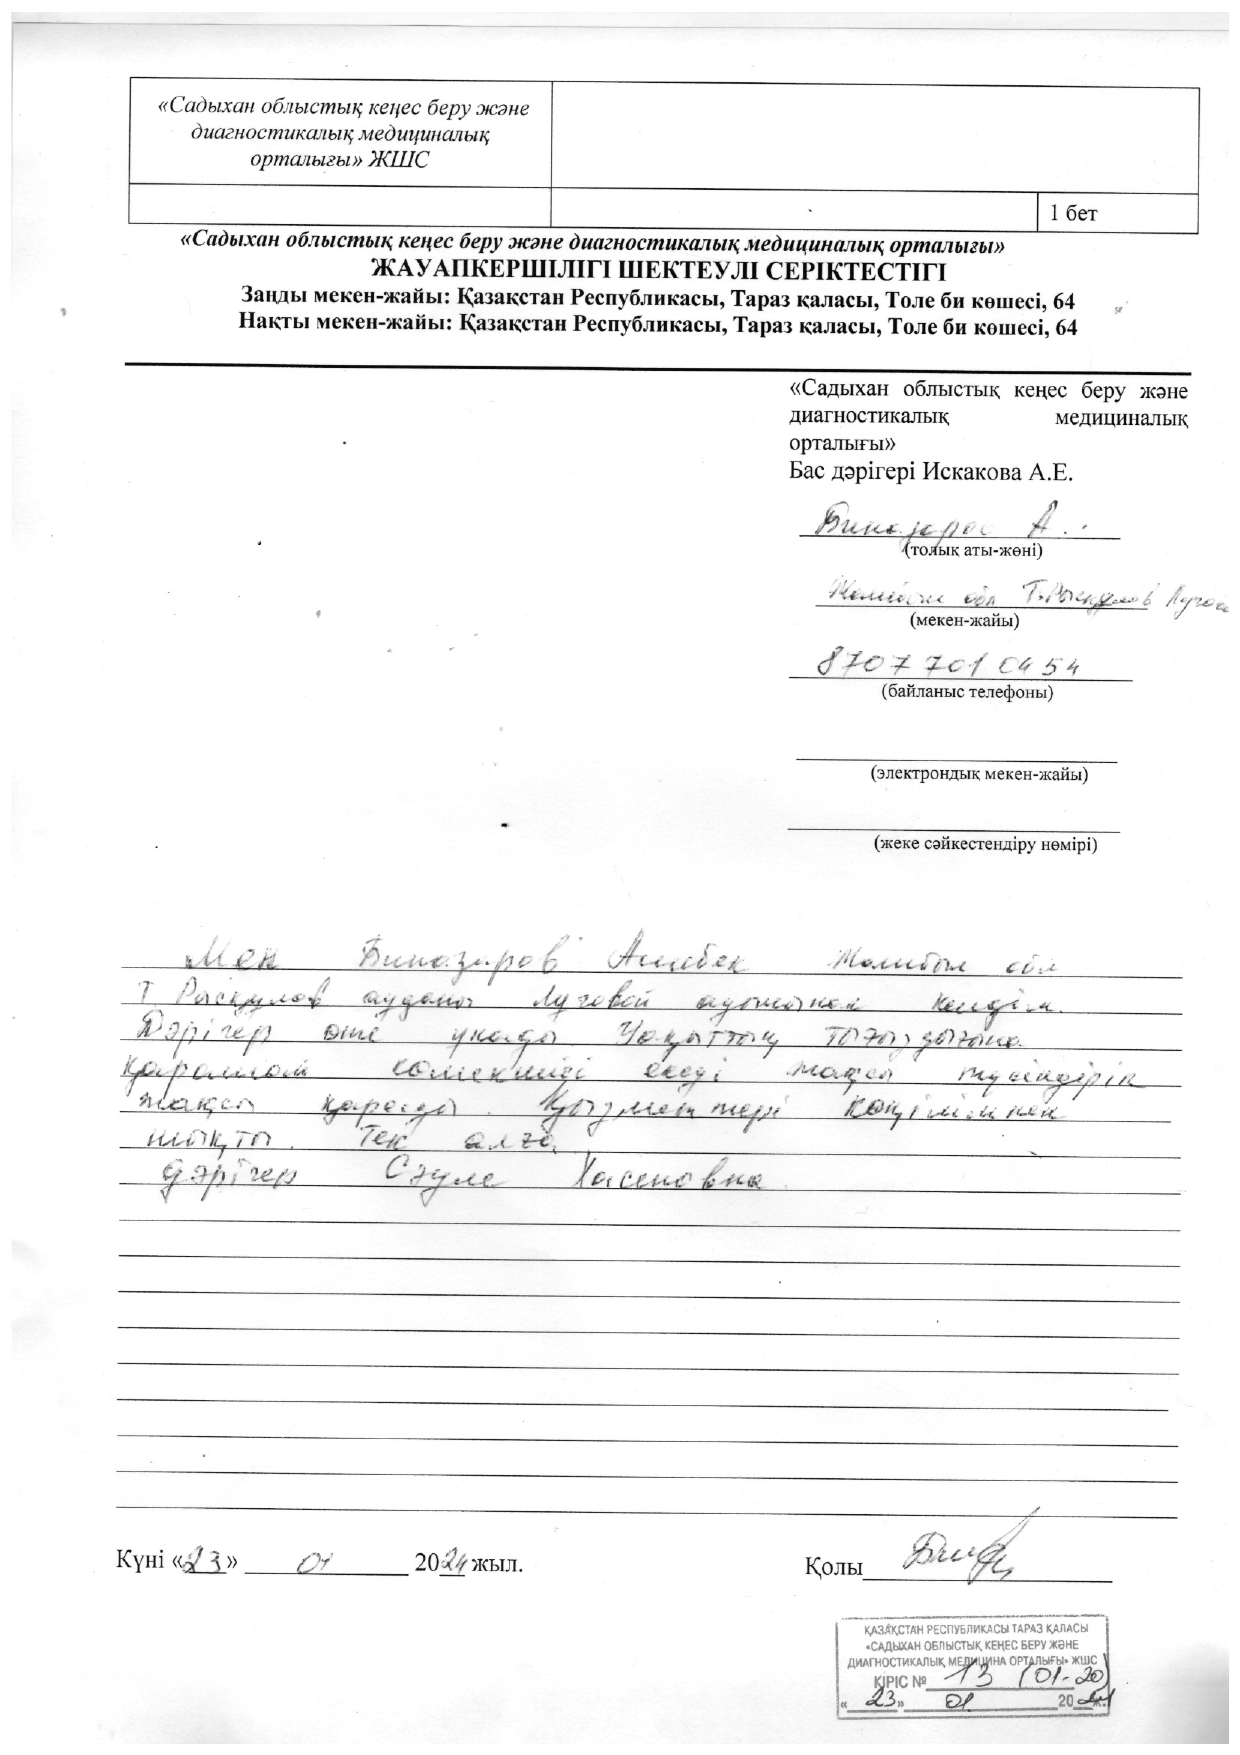 «Садыхан облыстық кеңес беру және
диагностикалық медициналық
орталығы» ЖШС
1 бет
«Садыхан облыстық кеңес беру және диагностикалық медициналық орталығы»
ЖАУАПКЕРШІЛІГІ ШЕКТЕУЛІ СЕРІКТЕСТІГІ
Заңды мекен-жайы: Қазақстан Республикасы, Тараз қаласы, Толе би көшесі, 64
Нақты мекен-жайы: Қазақстан Республикасы, Тараз қаласы, Толе би көшесі, 64
«Садыхан облыстық кеңес беру және
диагностикалық медициналық
орталығы»
Бас дәрігері Искакова А.Е.
Биназаров А.
(толық аты-жөні)
Жамбыл обл Т.Рысқұлов
(мекен-жайы)
8707 701 04 54
(байланыс телефоны)
(электрондық мекен-жайы)
(жеке сәйкестендіру нөмірі)
Мен Биназаров Жамбыл обл
Т Рысқұлов ауданы Луговой ауылынан келдім.
Дәрігер өте ұнады Уақыттың тығыздығына
қарамай көмекшісі екеуі жақсы түсіндіріп
жақсы қарады. Қызметтері көңілімнен
шықты. Тек алға
дәрігер Сәуле Хасеновна
Күні «23» 01 2024 жыл.
Қолы
ҚАЗАҚСТАН РЕСПУБЛИКАСЫ ТАРАЗ ҚАЛАСЫ
«САДЫХАН ОБЛЫСТЫҚ КЕҢЕС БЕРУ ЖӘНЕ
ДИАГНОСТИКАЛЫҚ МЕДИЦИНА ОРТАЛЫҒЫ» ЖШС
КІРІС № 13 (01-20)
«23» 01 2024 ж.